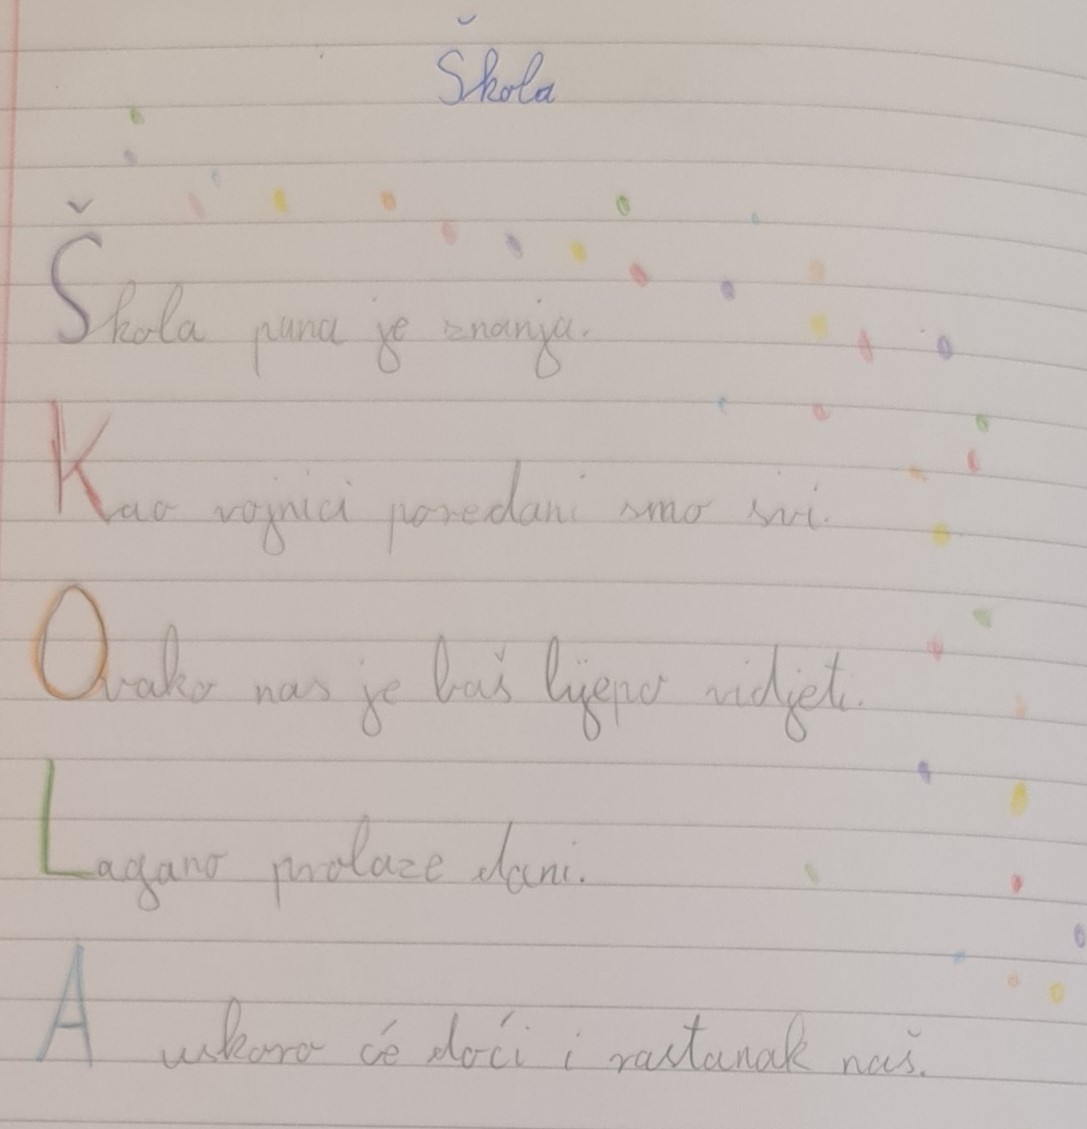 Škola
Škola puna je znanja.
Kao vojnici poredani smo svi.
Ovako nas je baš lijepo vidjeti.
Lagano prolaze dani.
A uskoro će doći i rastanak naš.